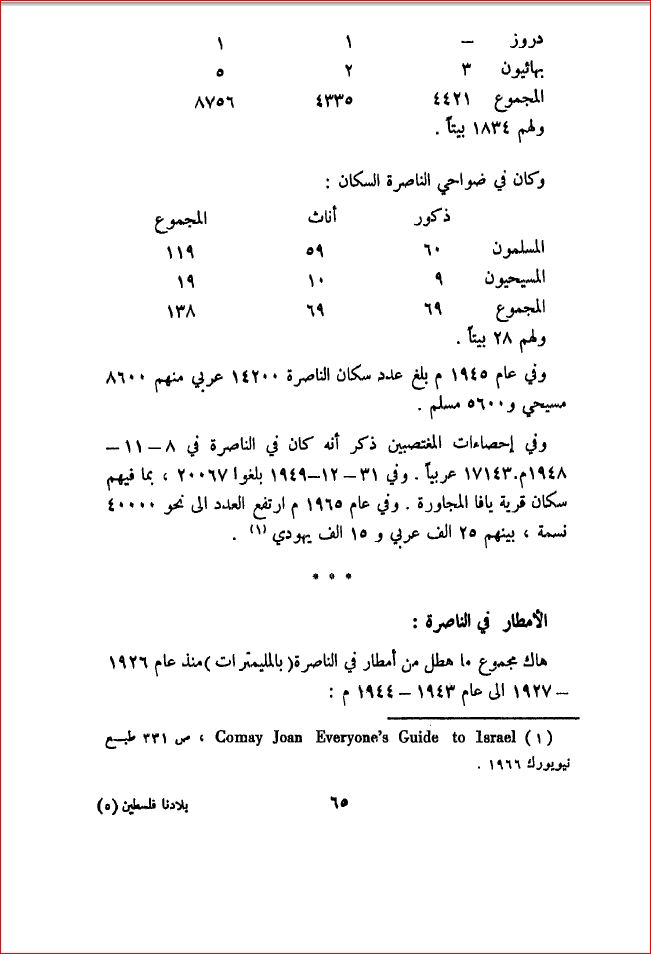 دروز – ١ ١
بهائيون ٣ ٢ ٥
المجموع ٤٤٢١ ٤٣٣٥ ٨٧٥٦
ولهم ١٨٣٤ بيتاً .
وكان في ضواحي الناصرة السكان :
ذكور أناث المجموع
المسلمون ٦٠ ٥٩ ١١٩
المسيحيون ٩ ١٠ ١٩
المجموع ٦٩ ٦٩ ١٣٨
ولهم ٢٨ بيتاً .
وفي عام ١٩٤٥ م بلغ عدد سكان الناصرة ١٤٢٠٠ عربي منهم ٨٦٠٠
مسيحي و ٥٦٠٠ مسلم .
وفي إحصاءات المغتصبين ذكر أنه كان في الناصرة في ٨ – ١١ –
١٩٤٨م.١٧١٤٣ عربياً . وفي ٣١ – ١٢ –١٩٤٩ بلغوا ٢٠٠٦٧ ، بما فيهم
سكان قرية يافا المجاورة . وفي عام ١٩٦٥ م ارتفع العدد الى نحو ٤٠٠٠٠
نسمة ، بينهم ٢٥ الف عربي و ١٥ الف يهودي (١) .
* * *
الأمطار في الناصرة :
هاك مجموع ما هطل من أمطار في الناصرة ( بالمليمترات ) منذ عام ١٩٢٦
– ١٩٢٧ الى عام ١٩٤٣ – ١٩٤٤ م :
(١) Comay Joan Everyone's Guide to Israel ، ص ٣٣١ طبع
نيويورك ١٩٦٦ .
٦٥
بلادنا فلسطين (٥)